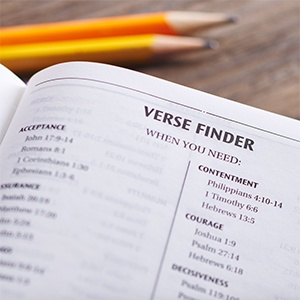 VERSE FINDER
WHEN YOU NEED:
ACCEPTANCE
John 17:9-14
Romans 8:1
1 Corinthians 1:30
Ephesians 1:3-6
SSURANCE
Isaiah
Matthew
John
Romans
CONTENTMENT
Philippians 4:10-14
1 Timothy 6:6
Hebrews 13:5
COURAGE
Joshua 1:9
Psalm 27:14
Hebrews 6:18
DECISIVENESS
Psalm